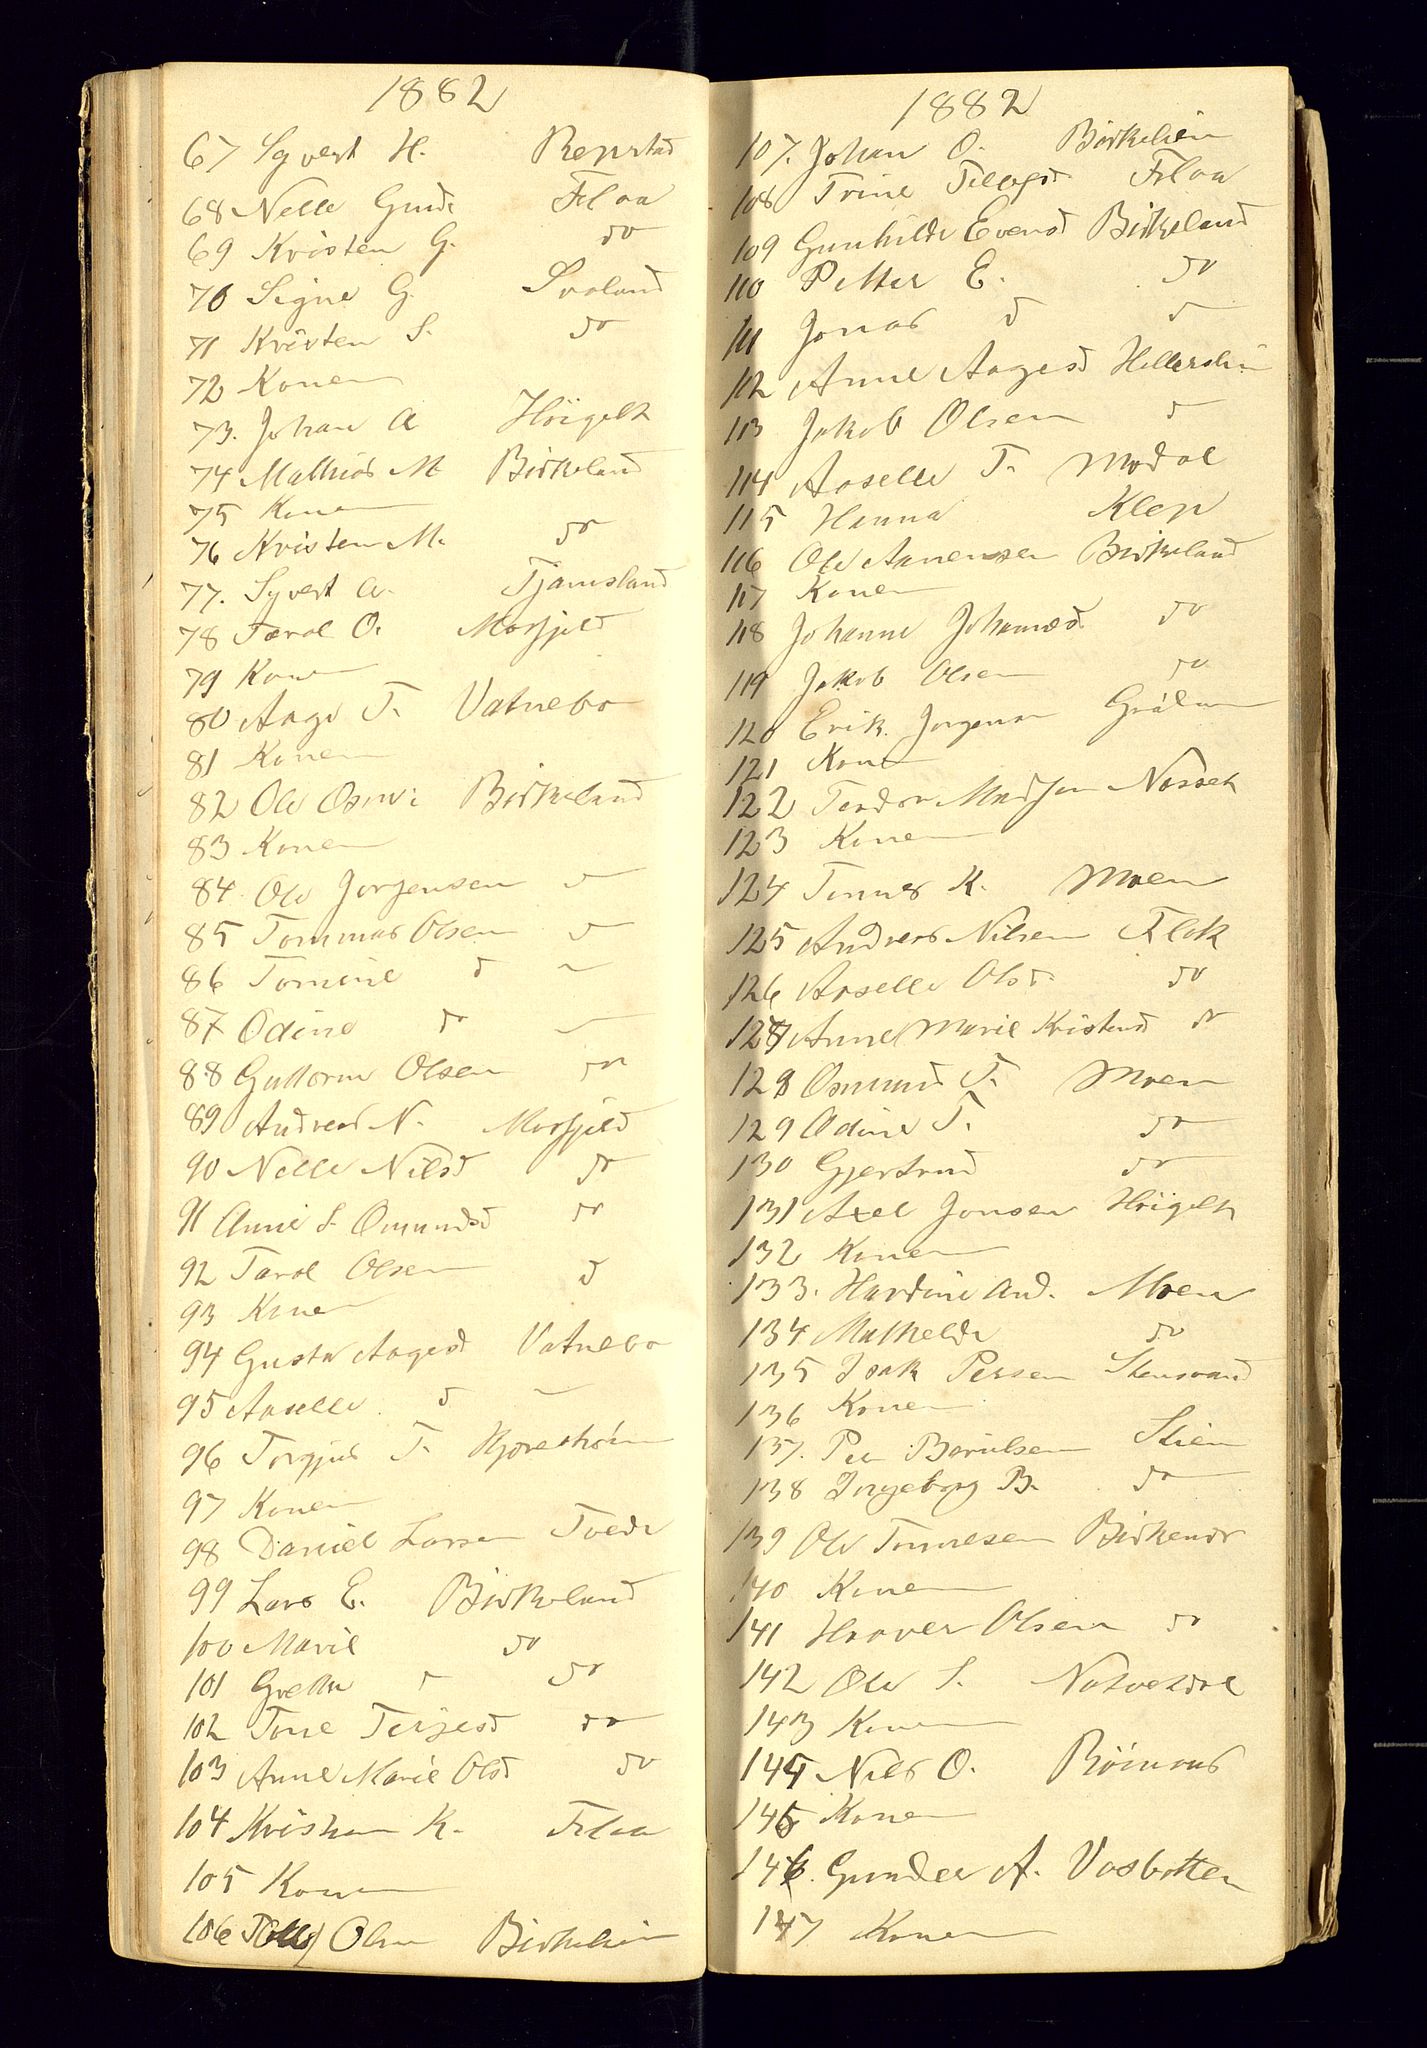 1882
67 Syvert H. Repstad
68 Nelle Gunds Flaa
69 Kristen G. do
70 Signe G. Svaland
71 Kristen S. do
72 Konen
73. Johan A Höigelt
74 Mathias M. Birkeland
75 Konen
76 Kristen M. do
77. Syvert A. Tjamsland
78 Tarol O. Mosfjeld
79 Konen
80 Aage T. Vatnebo
81 Konen
82 Ole Birkeland
83 Konen
84. Ole Jorgensen d
85 Tommas Olsen d
86 Tomine d
87 Odine do
88 Guttorm Olsen do
89 Andreas N. Mosfjeld
90 Nelle Nilsd do
91 Anne S. Omundsd do
92 Tarol Olsen d
93 Konen
94 Gusta Aagesd Vatnebo
95 Aaselle d
96 Torgjus T.
97 Konen
98 Daniel Larsen Tvede
99 Lars E. Birkeland
100 Marie do
101 Grethe d do
102 Tone Terjesd do
103 Anne Marie Olsd do
104 Kristian K. Flaa
105 Konen
106 Olsen Birkelien
1882
107. Johan O. Birkelien
108 Trine Tellefsd Flaa
109 Gunhilde Evensd Birkeland
110 Petter E. do
111 Jonas d d
112 Anne Aagesd Hellerslien
113 Jakob Olsen d
114 Aaselle T. Modal
115 Hanna Klep
116 Ole Aanensen Birkeland
117 Konen
118 Johanne Johannesd do
119 Jakob Olsen do
120 Erik Jorgensen
121 Konen
122 Teodor Madsen
123 Konen
124 Tonnes K. Moen
125 Andreas Nilsen Flak
126 Aaselle Olsd do
127 Anne Marie Kristensd do
128 Osmund T. Moen
129 Odine T. do
130 Gjertrud do
131 Axel Jonsen Höigelt
132 Konen
133. Hardine And. Moen
134 Mathelde do
135 Isak Persen Stensvand
136 Konen
137. Per Berulsen Stien
138 Ingeborg B. do
139 Ole Tonnesen Birkenes
140 Konen
141 Haaver Olsen do
142 Ole S. Natvetdal
143 Konen
144 Nils O. Röinaas
145 Konen
146. Gunder A. Vasbotten
147 Konen